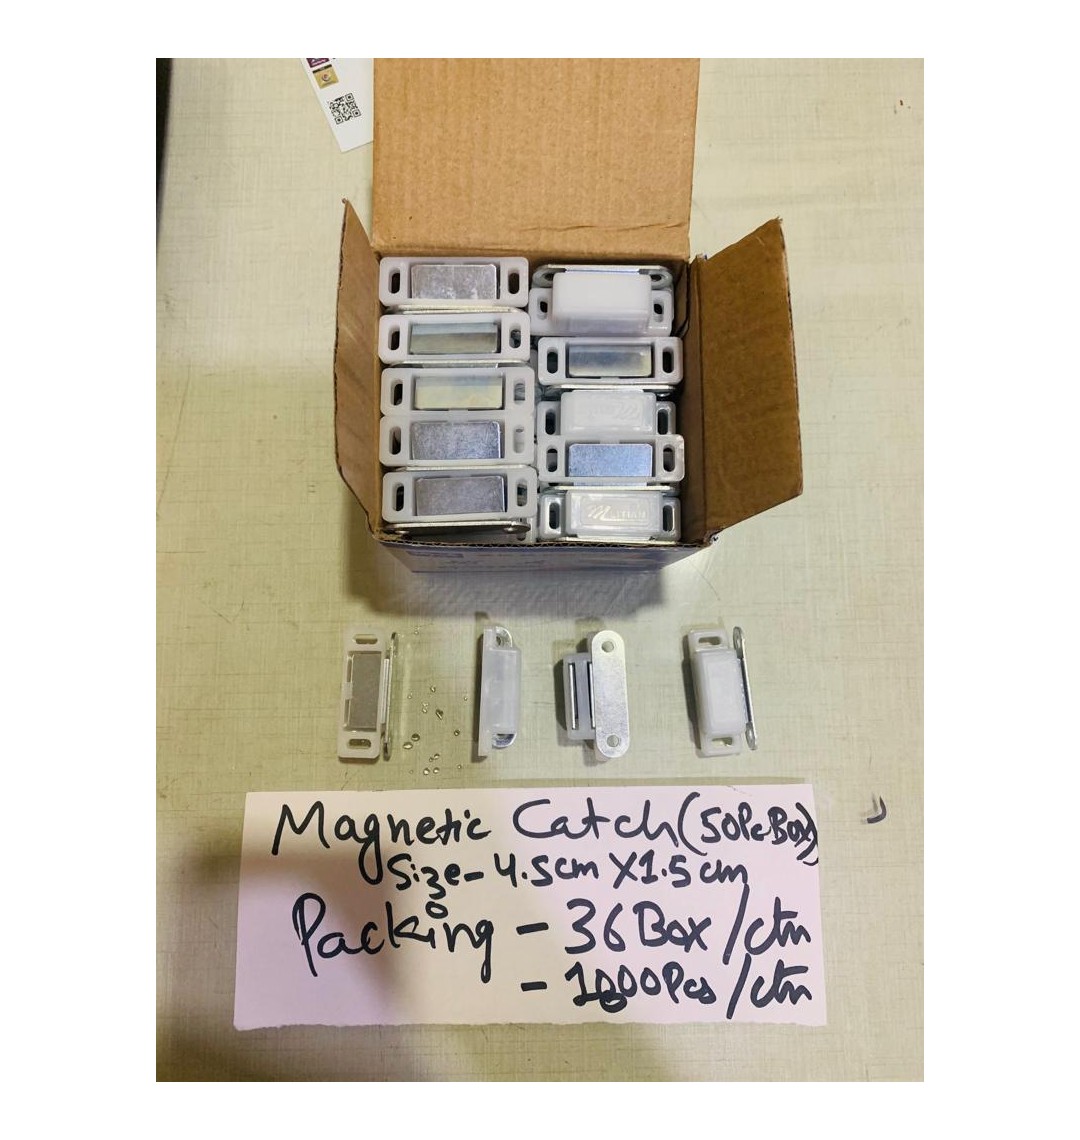 Magnetic Catch (50Pc Box)
Size - 4.5cm X 1.5cm
Packing - 36 Box / ctn
- 1000 Pcs / ctn